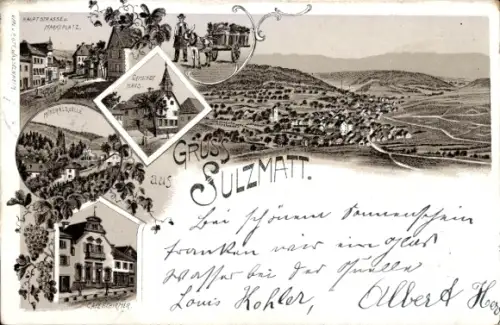 HAUPTSTRASSE u.
MARKTPLATZ.
GEMEINDE
HAUS.
MINERALQUELLE
GRUSS
aus
SULZMATT.
Bei schönem Sonnenschein
tranken wir ein Glas
Wasser bei der Quelle
Louis Kohler, Albert